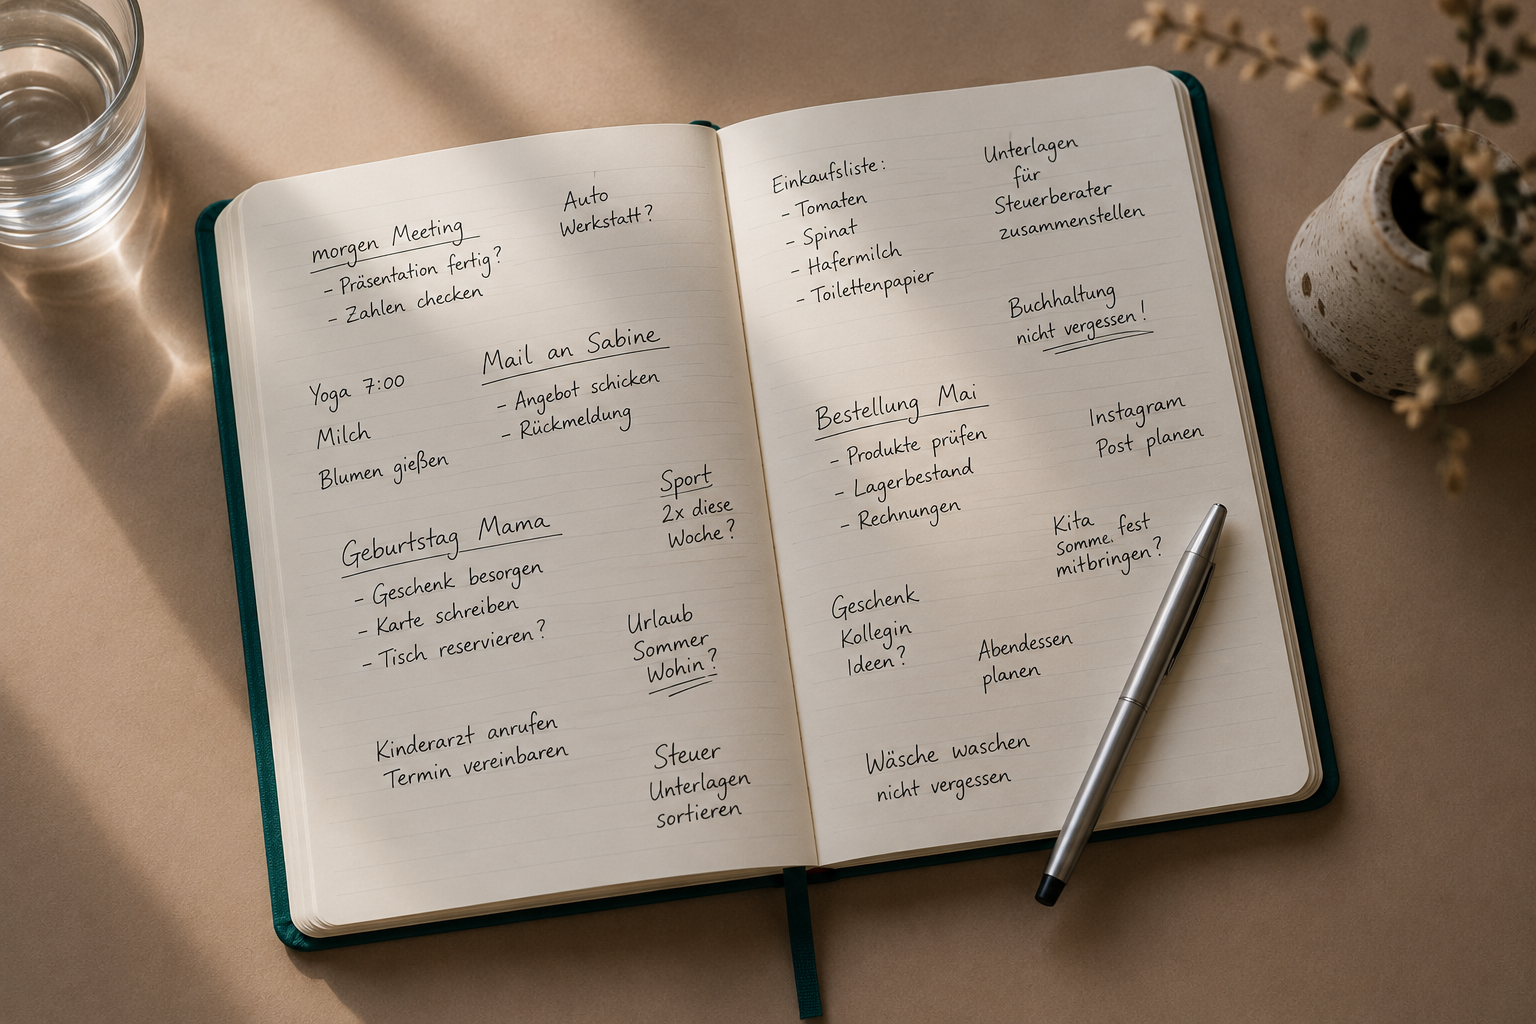 morgen Meeting
- Präsentation fertig?
- Zahlen checken
Auto
Werkstatt?
Yoga 7:00
Milch
Blumen gießen
Mail an Sabine
- Angebot schicken
- Rückmeldung
Sport
2x diese
Woche?
Geburtstag Mama
- Geschenk besorgen
- Karte schreiben
- Tisch reservieren?
Urlaub
Sommer
Wohin?
Kinderarzt anrufen
Termin vereinbaren
Steuer
Unterlagen
sortieren
Einkaufsliste:
- Tomaten
- Spinat
- Hafermilch
- Toilettenpapier
Unterlagen
für
Steuerberater
zusammenstellen
Buchhaltung
nicht vergessen!
Bestellung Mai
- Produkte prüfen
- Lagerbestand
- Rechnungen
Instagram
Post planen
Kita
fest
mitbringen?
Geschenk
Kollegin
Ideen?
Abendessen
planen
Wäsche waschen
nicht vergessen